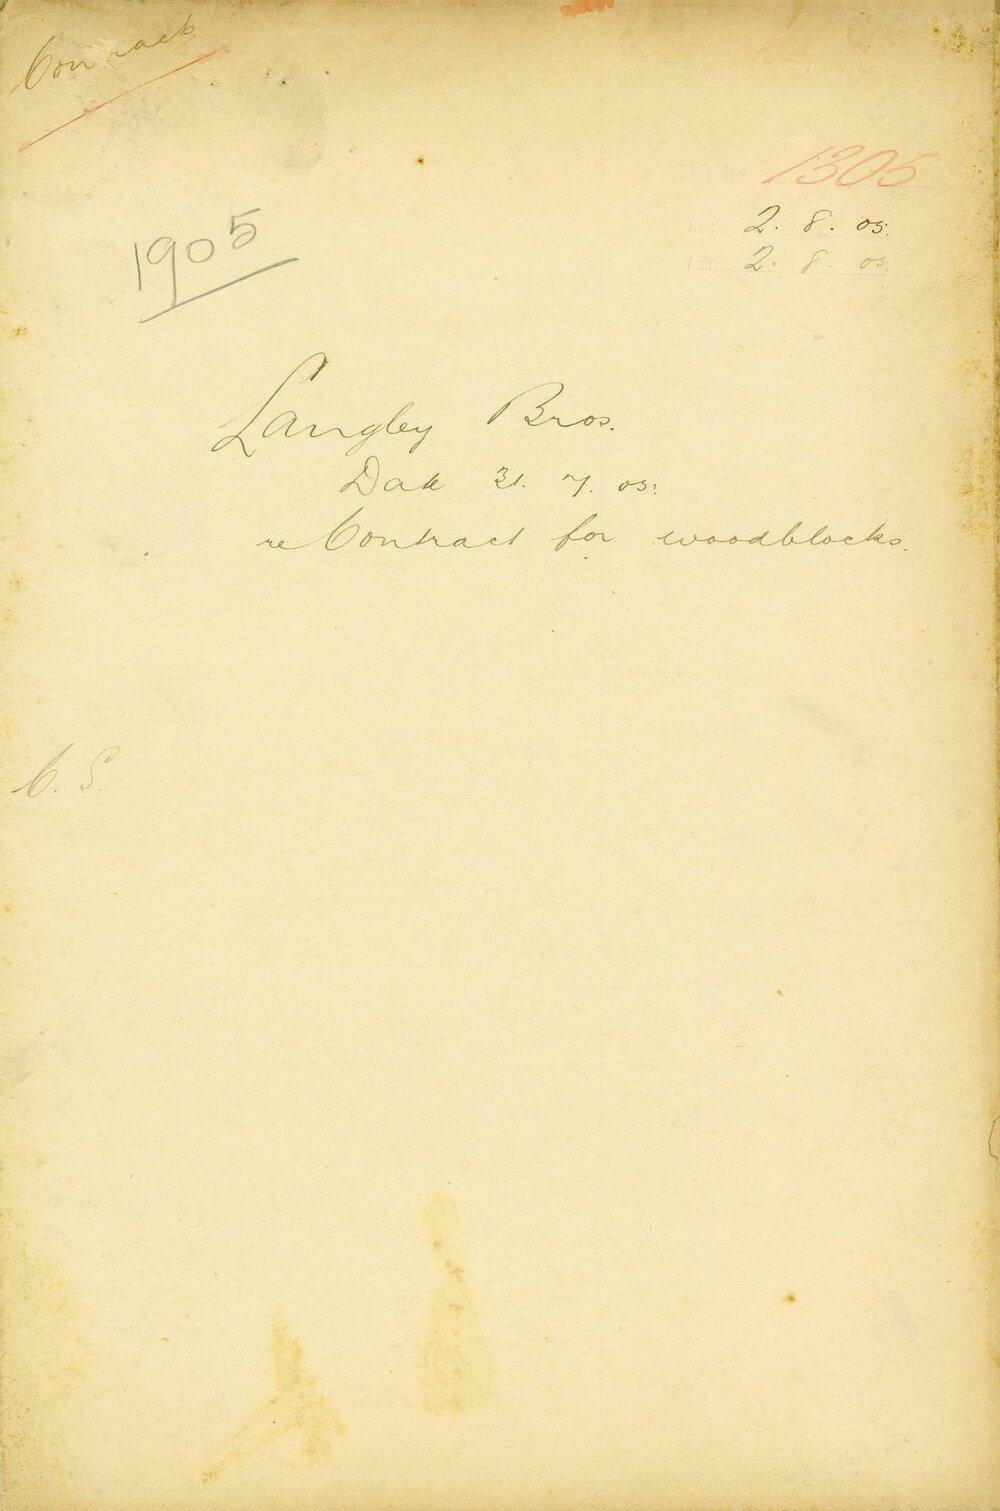 Contract
1305
2. 8. 05.
2. 8. 05.
1905
Langley Bros.
Date 31. 7. 05.
re Contract for woodblocks.
C. S.